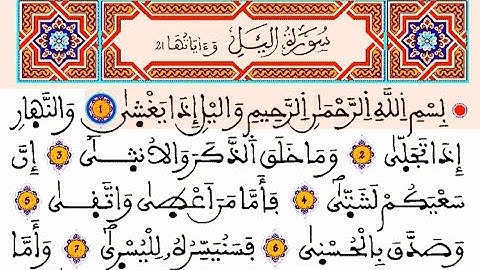 سُورَةُ اليْلِ وَءَايَاتُهَا 21
بِسْمِ اِللَّهِ اِلرَّحْمَٰنِ اِلرَّحِيمِ وَاليْلِ إِذَا يَغْشَىٰ 1 وَالنَّهَارِ
إِذَا تَجَلَّىٰ 2 وَمَا خَلَقَ اَلذَّكَرَ وَالُانثَىٰ 3 إِنَّ
سَعْيَكُمْ لَشَتَّىٰ 4 فَأَمَّا مَنَ اَعْطَىٰ وَاتَّقَىٰ 5
وَصَدَّقَ بِالْحُسْنَىٰ 6 فَسَنُيَسِّرُهُۥ لِلْيُسْرَىٰ 7 وَأَمَّا